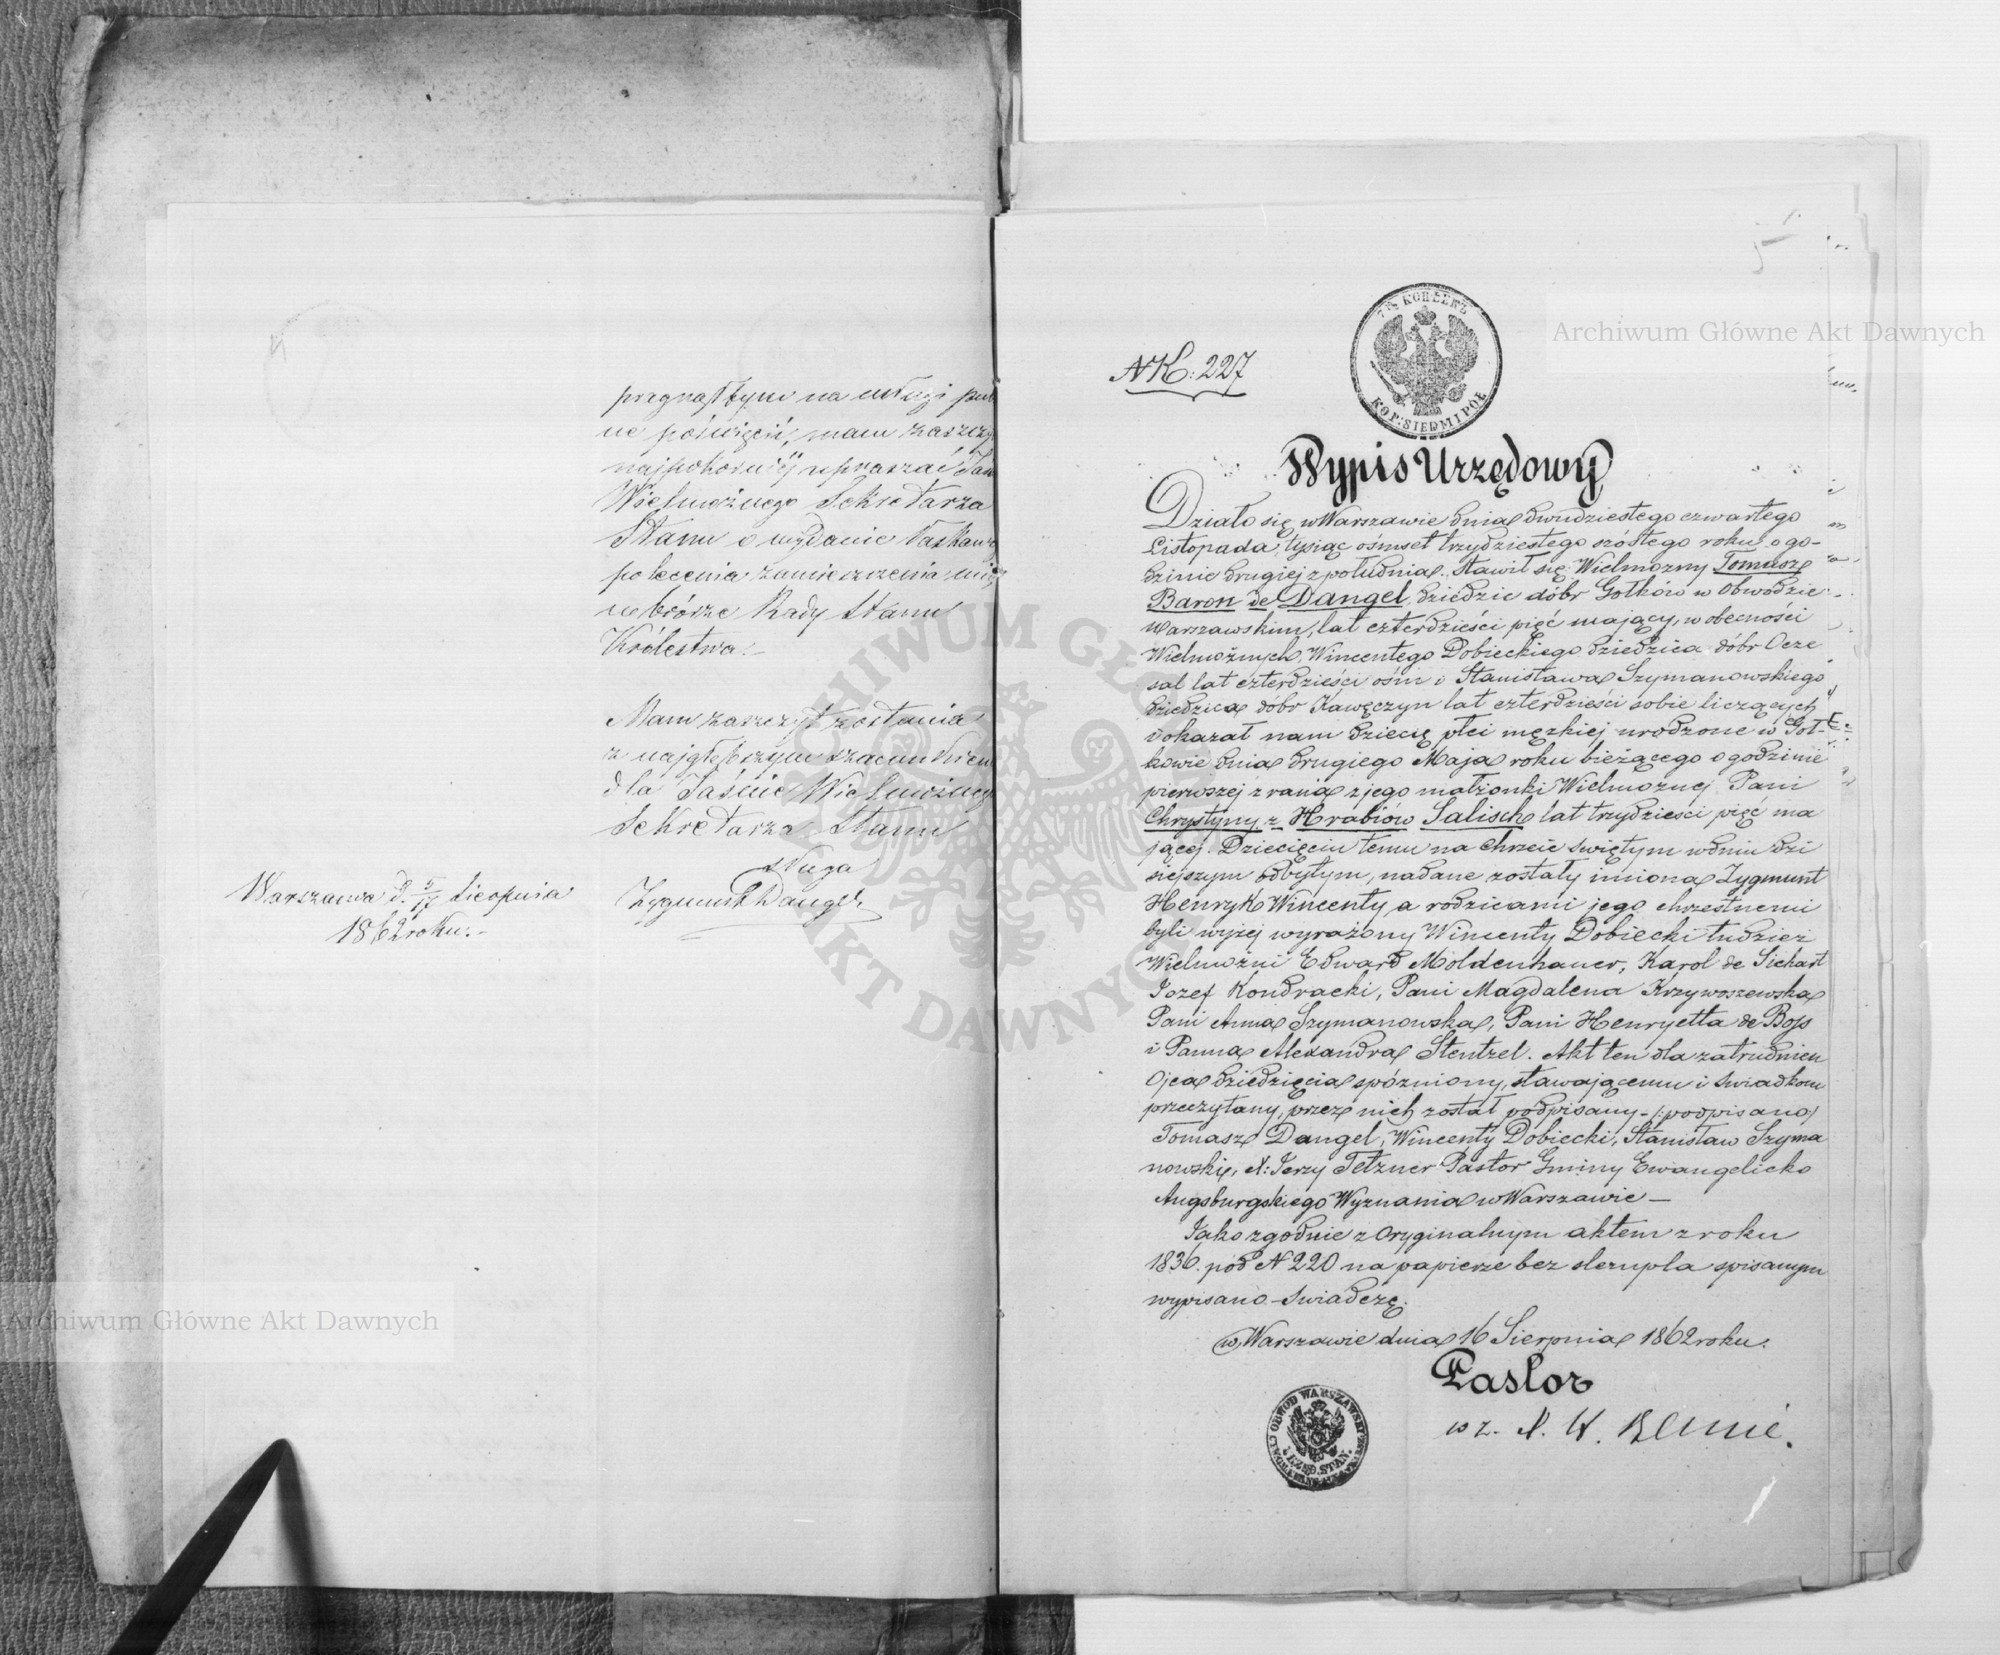 pragnąc tym na usługi pu
ne poświęcić, mam zaszczy
najpokorniéj upraszać Jaw
Wielmożnego Sekretarza
Stanu o wydanie łaskawego
polecenia zamieszczenia mię
w biórze Rady Stanu
Królestwa.-
Mam zaszczyt zostawać
z najgłębszym szacunkiem
dla Jaśnie Wielmożnego
Sekretarza Stanu
sługa
Zygmunt Dangel
Warszawa d. 5/17 Sierpnia
1862 roku.-
5
Archiwum Główne Akt Dawnych
7½ КОПѢЕКЪ
KOP: SIEDM I PÓŁ
N K: 227
Wypis Urzędowy
Działo się w Warszawie dnia dwudziestego czwartego
Listopada, tysiąc ośmset trzydziestego szóstego roku o go-
dzinie drugiej z południa. Stawił się Wielmożny Tomasz
Baron de Dangel, dziedzic dóbr Gołków w Obwodzie
Warszawskim, lat czterdzieści pięć mający, w obecności
Wielmożnych, Wincentego Dobieckiego dziedzica dóbr Ocze
sal lat czterdzieści ośm i Stanisława Szymanowskiego
dziedzica dóbr Kawęczyn lat czterdzieści sobie liczących
i okazał nam dziecię płci męzkiej urodzone w Goł-
kowie dnia drugiego Maja roku bieżącego o godzinie
pierwszej z rana z jego małżonki Wielmożnej Pani
Chrystyny z Hrabiów Salisch lat trzydzieści pięć ma
jącej. Dziecięciu temu na Chrzcie świętym w dniu dzi
siejszym odbytym, nadane zostały imiona Zygmunt
Henryk Wincenty a rodzicami jego chrzestnemi
byli wyżej wyrażony Wincenty Dobiecki tudzież
Wielmożni Edward Moldenhauer, Karol de Sichart
Jozef Kondracki, Pani Magdalena Krzywoszewska
Pani Anna Szymanowska, Pani Henryetta de Boss
i Panna Alexandra Stentzel. Akt ten dla zatrudnien
Ojca dziecięcia spóźniony, stawającemu i świadkom
przeczytany, przez nich został podpisany - (:podpisano)
Tomasz Dangel, Wincenty Dobiecki, Stanisław Szyma
nowski, X: Jerzy Tetzner Pastor Gminy Ewangelicko
Augsburgskiego Wyznania w Warszawie -
Jako zgodnie z oryginalnym aktem z roku
1836. pod N 220 na papierze bez stempla spisanym
wypisano - świadczę.
w Warszawie dnia 16 Sierpnia 1862 roku.
Pastor
w z. X. W.
OBWÓD WARSZAWSKI
URZĘD. STAN.
Archiwum Główne Akt Dawnych
ARCHIWUM GŁÓWNE AKT DAWNYCH